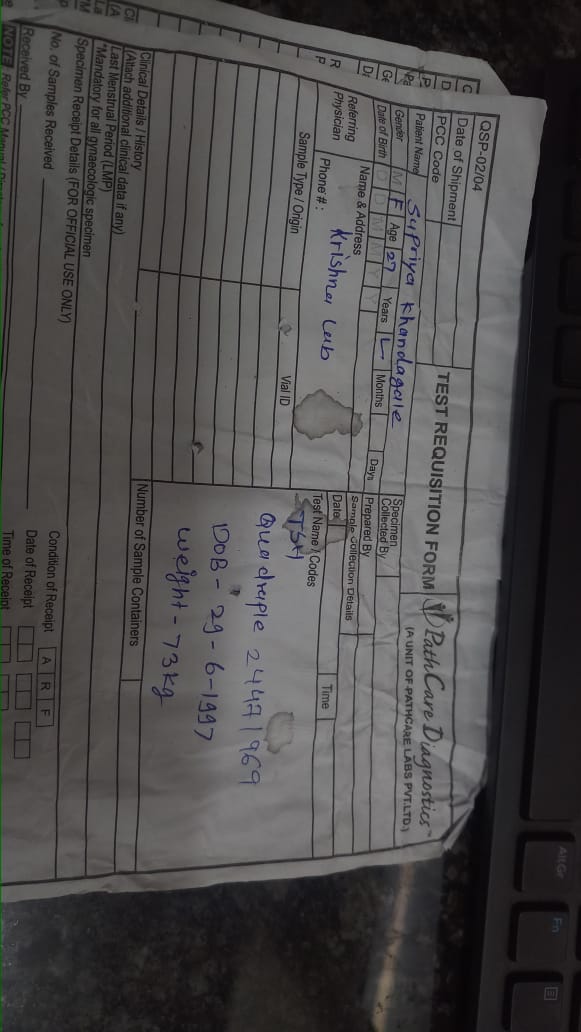 QSP-02/04
TEST REQUISITION FORM
PathCare Diagnostics
(A UNIT OF PATHCARE LABS PVT.LTD.)
Date of Shipment
PCC Code
Patient Name Supriya Khandagale
Specimen Collected By
Gender M F Age 27 Years Months Days
Prepared By
Date of Birth D D M M Y Y
Sample Collection Details
Referring Physician
Name & Address
Krishna Lab
Phone #:
Date
Time
Sample Type / Origin
Vial ID
Test Name / Codes
TSH
Quadruple 24471969
DOB - 29-6-1997
Weight - 73 kg
Clinical Details / History
(Attach additional clinical data if any)
Last Menstrual Period (LMP)
*Mandatory for all gynaecologic specimen
Number of Sample Containers
Specimen Receipt Details (FOR OFFICIAL USE ONLY)
No. of Samples Received
Condition of Receipt A R F
Received By
Date of Receipt
Time of Receipt
NOTE Refer PCC Manual